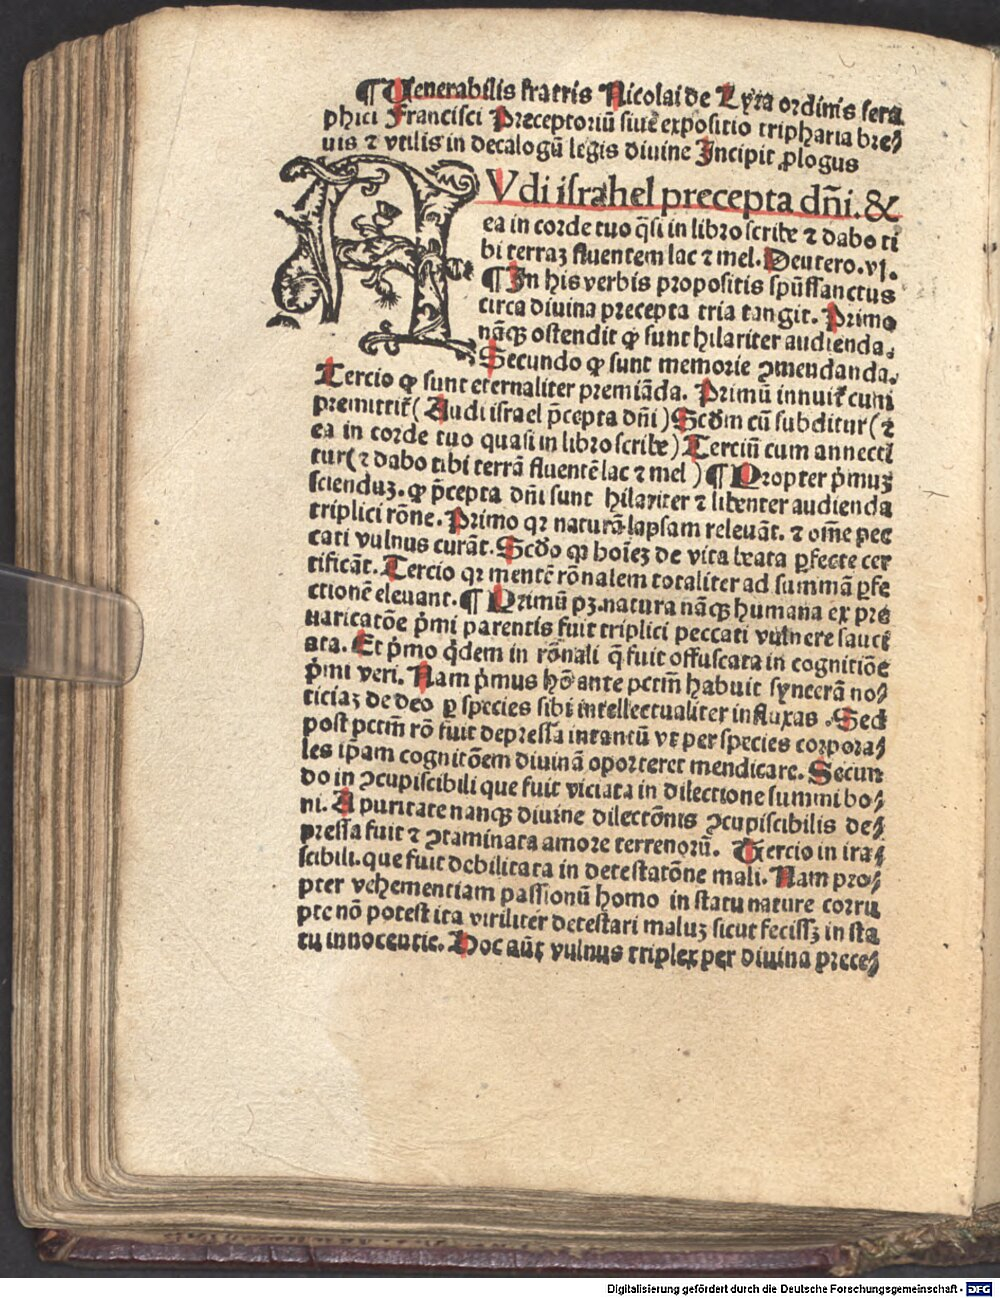 ¶ Uenerabilis fratris Nicolai de Lyra ordinis sera
phici Francisci Preceptoriū siue expositio tripharia bre⸗
uis ⁊ vtilis in decalogū legis diuine Incipit ꝓlogus
AVdi israhel precepta dn̄i. &
ea in corde tuo q̄si in libro scribe ⁊ dabo ti
bi terraꝫ fluentem lac ⁊ mel. Deutero. vj.
¶ In his verbis propositis spūssanctus
circa diuina precepta tria tangit. Primo
nāqꝫ ostendit ꝙ sunt hilariter audienda.
Secundo ꝙ sunt memorie ꝯmendanda.
Tercio ꝙ sunt eternaliter premiāda. Primū innuit̄ cum
premittit̄ ( Audi israel p̄cepta dn̄i ) Scd̄m cū subditur ( ⁊
ea in corde tuo quasi in libro scribe ) Terciū cum annecti
tur ( ⁊ dabo tibi terrā fluentē lac ⁊ mel ) ¶ Propter p̄muꝫ
scienduꝫ. ꝙ p̄cepta dn̄i sunt hilariter ⁊ libenter audienda
triplici rōne. Primo qꝛ naturā lapsam releuāt. ⁊ om̄e pec
cati vulnus curāt. Scd̄o qꝛ hoīeꝫ de vita beata ꝑfecte cer
tificāt. Tercio qꝛ mentē rōnalem totaliter ad summā ꝑfe
ctionē eleuant. ¶ Primū pꝫ. natura nāqꝫ humana ex pre
uaricatōe p̄mi parentis fuit triplici peccati vulnere sauci
ata. Et p̄mo q̇dem in rōnali q̄ fuit offuscata in cognitiōe
p̄mi veri. Nam p̄mus hō ante pctm̄ habuit syncerā no⸗
ticiaꝫ de deo ꝑ species sibi intellectualiter influxas. Sed
post pctm̄ rō fuit depressa intantū vt per species corpora⸗
les ip̄am cognitōem diuinā oporteret mendicare. Secun
do in ꝯcupiscibili que fuit viciata in dilectione summi bo⸗
ni. A puritate nancqꝫ diuine dilectōnis ꝯcupiscibilis de⸗
pressa fuit ⁊ ꝯtaminata amore terrenorū. Tercio in ira⸗
scibili. que fuit debilitata in detestatōne mali. Nam pro⸗
pter vehementiam passionū homo in statu nature corru
pte nō potest ita viriliter detestari maluꝫ sicut fecissꝫ in sta
tu innocentie. Hoc aūt vulnus triplex per diuina prece⸗
Digitalisierung gefördert durch die Deutsche Forschungsgemeinschaft - DFG